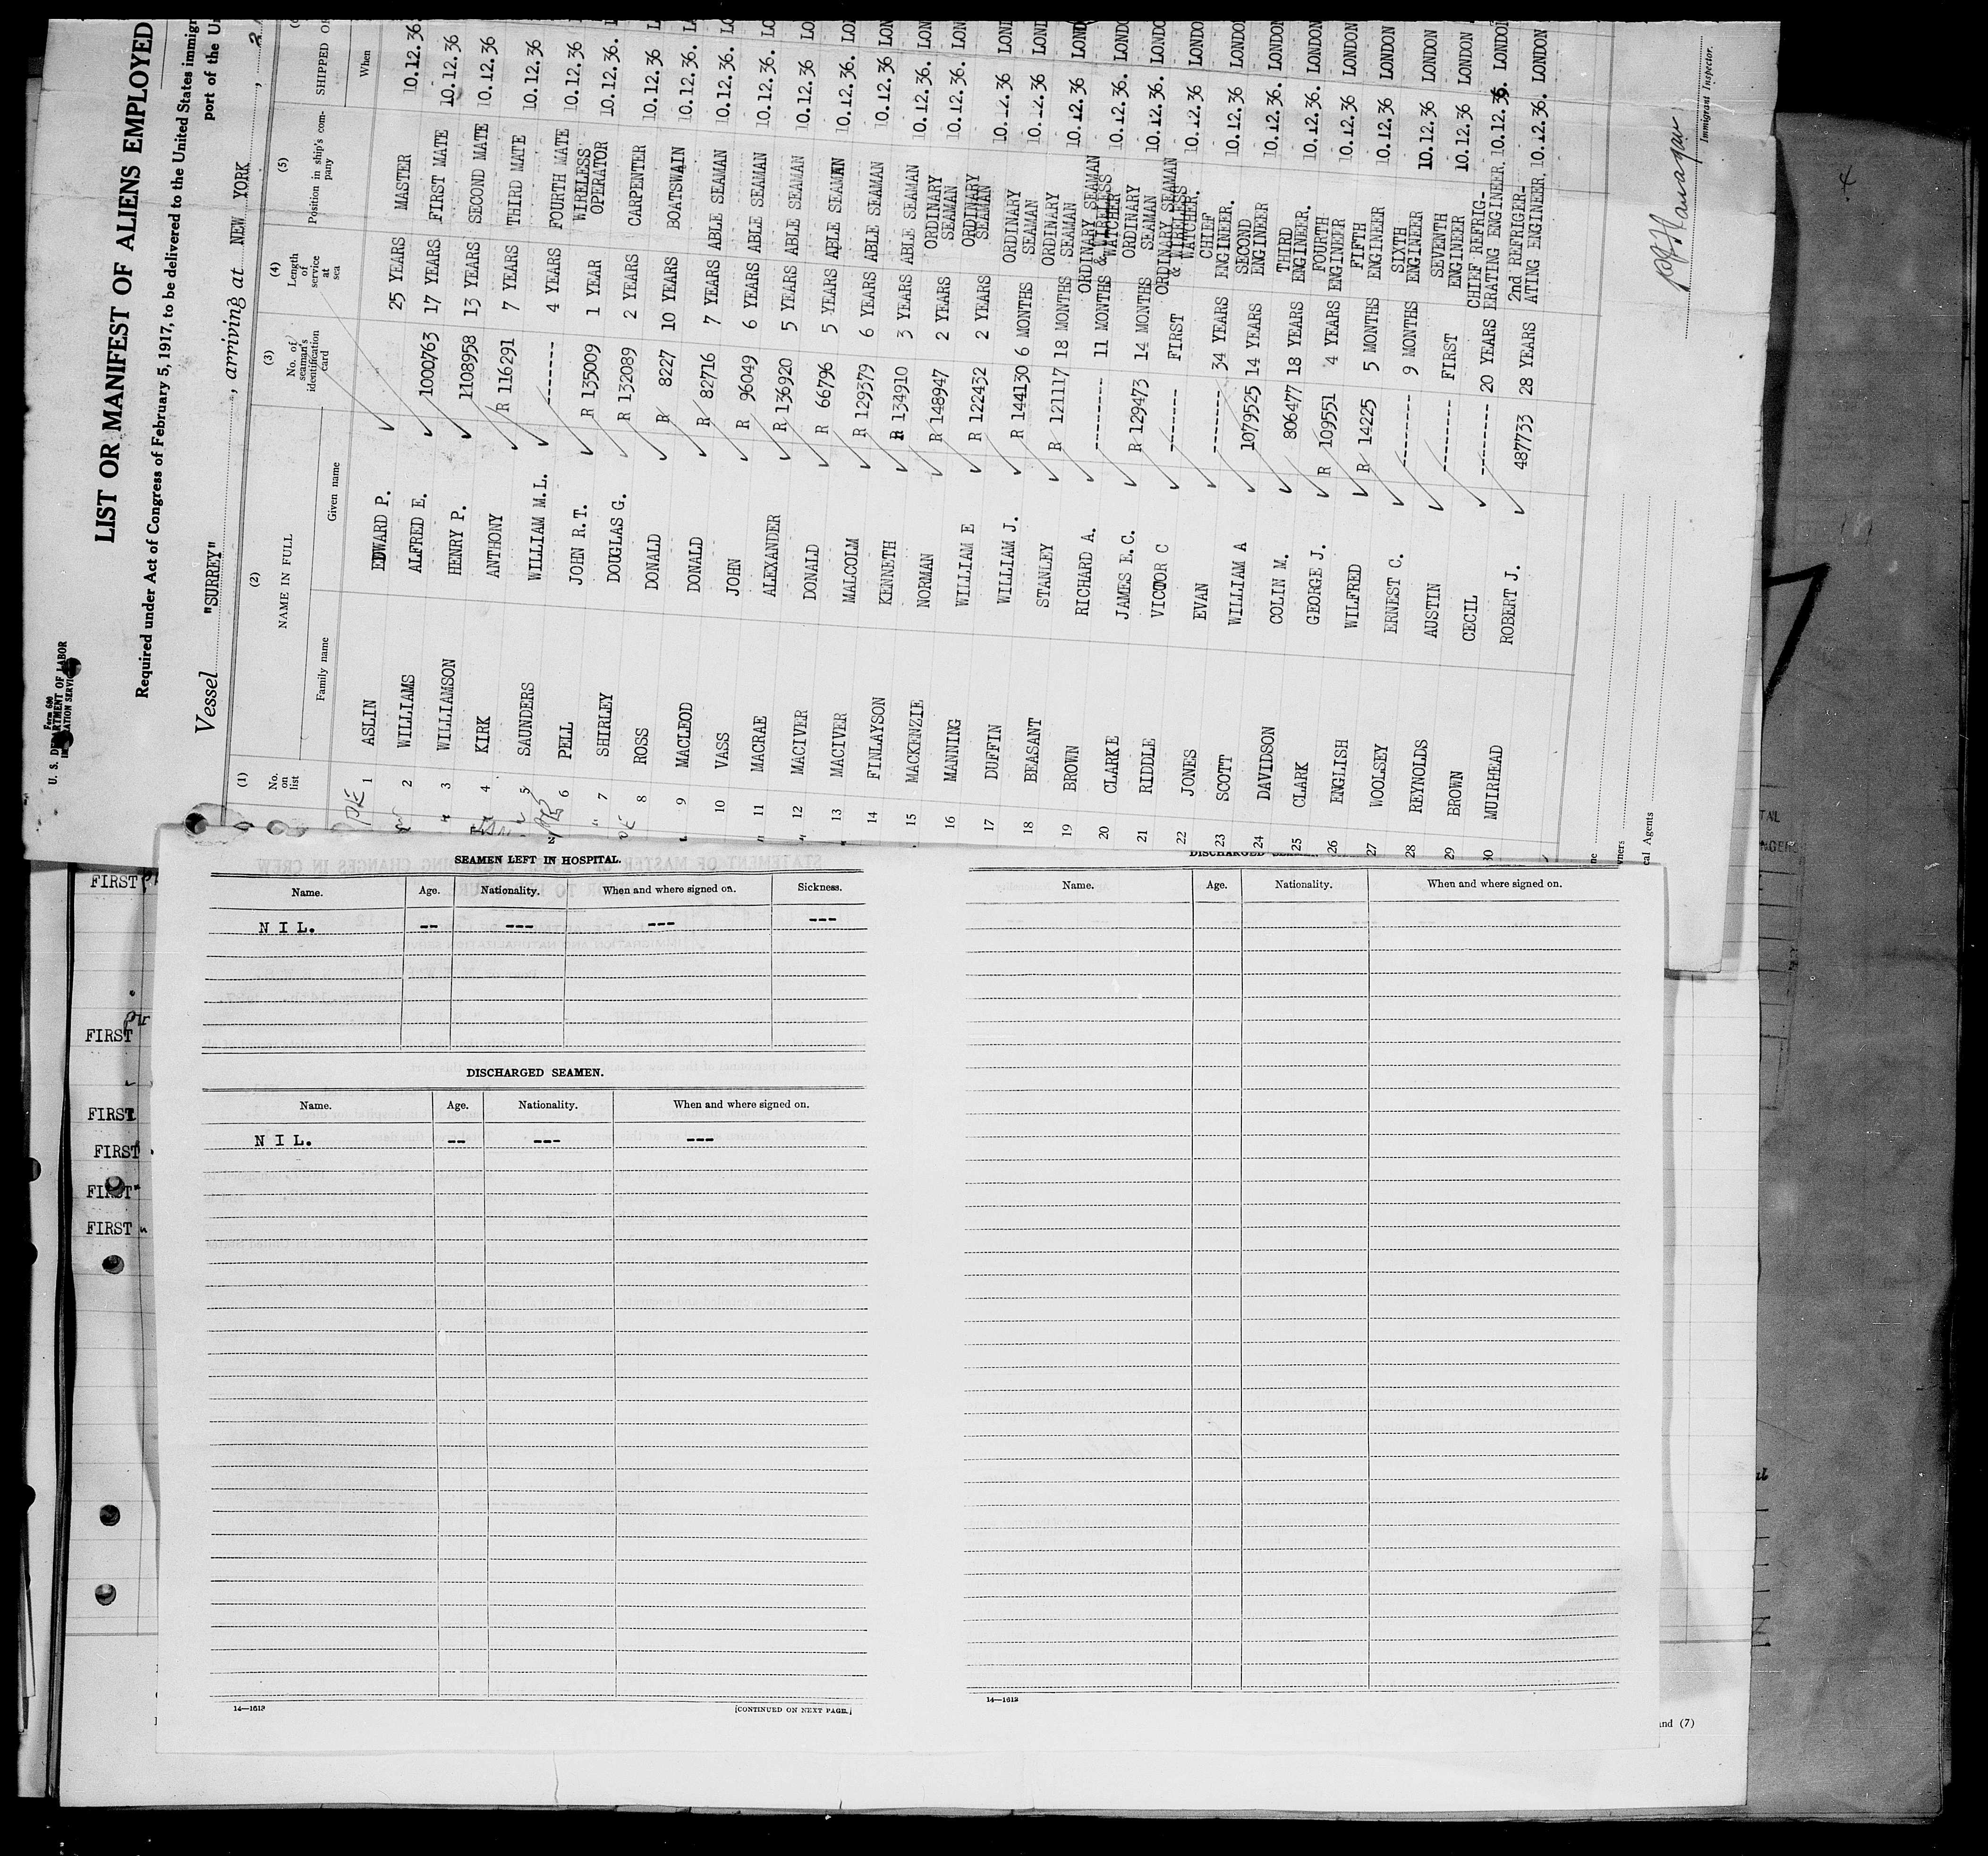 Form 680
U. S. DEPARTMENT OF LABOR
IMMIGRATION SERVICE
LIST OR MANIFEST OF ALIENS EMPLOYED
Required under Act of Congress of February 5, 1917, to be delivered to the United States immigr
port of the Un
Vessel "SURREY", arriving at NEW YORK,
(1) (2) (3) (4) (5)
No. on list NAME IN FULL No. of seaman's identification card Length of service at sea Position in ship's company SHIPPED OR
Family name Given name When
1 ASLIN EDWARD P. 25 YEARS MASTER 10.12.36.
2 WILLIAMS ALFRED E. 1000763 17 YEARS FIRST MATE 10.12.36
3 WILLIAMSON HENRY P. 1108958 13 YEARS SECOND MATE 10.12.36
4 KIRK ANTHONY R 116291 7 YEARS THIRD MATE 10.12.36
5 SAUNDERS WILLIAM M.L. ------ 4 YEARS FOURTH MATE 10.12.36
6 PELL JOHN R.T. R 135009 1 YEAR WIRELESS OPERATOR 10.12.36.
7 SHIRLEY DOUGLAS G. R 132089 2 YEARS CARPENTER 10.12.36 L
8 ROSS DONALD R 8227 10 YEARS BOATSWAIN 10.12.36. L
9 MACLEOD DONALD R 82716 7 YEARS ABLE SEAMAN 10.12.36. LO
10 VASS JOHN R 96049 6 YEARS ABLE SEAMAN 10.12.36. LO
11 MACRAE ALEXANDER R 136920 5 YEARS ABLE SEAMAN 10.12.36 LO
12 MACIVER DONALD R 66796 5 YEARS ABLE SEAMAN 10.12.36. LON
13 MACIVER MALCOLM R 129379 6 YEARS ABLE SEAMAN 10.12.36 LON
14 FINLAYSON KENNETH R 134910 3 YEARS ABLE SEAMAN 10.12.36. LON
15 MACKENZIE NORMAN R 148947 2 YEARS ORDINARY SEAMAN 10.12.36. LON
16 MANNING WILLIAM E R 122432 2 YEARS ORDINARY SEAMAN 10.12.36 LON
17 DUFFIN WILLIAM J. R 144130 6 MONTHS ORDINARY SEAMAN 10.12.36 LON
18 BEASANT STANLEY R 121117 18 MONTHS ORDINARY SEAMAN 10.12.36 LOND
19 BROWN RICHARD A. -------- 11 MONTHS ORDINARY SEAMAN & WIRELESS WATCHER 10.12.36. LONDO
20 CLARKE JAMES E.C. R 129473 14 MONTHS ORDINARY SEAMAN 10.12.36. LONDO
21 RIDDLE VICTOR C ------- FIRST ORDINARY SEAMAN & WIRELESS WATCHER. 10.12.36 LONDO
22 JONES EVAN -------- 34 YEARS CHIEF ENGINEER. 10.12.36 LONDON
23 SCOTT WILLIAM A 1079525 14 YEARS SECOND ENGINEER 10.12.36. LONDON
24 DAVIDSON COLIN M. 806477 18 YEARS THIRD ENGINEER. 10.12.36. LONDON
25 CLARK GEORGE J. R 109551 4 YEARS FOURTH ENGINEER 10.12.36 LONDON
26 ENGLISH WILFRED R 14225 5 MONTHS FIFTH ENGINEER 10.12.36 LONDON
27 WOOLSEY ERNEST C. -------- 9 MONTHS SIXTH ENGINEER 10.12.36 LONDON
28 REYNOLDS AUSTIN -------- FIRST SEVENTH ENGINEER 10.12.36 LONDON
29 BROWN CECIL -------- 20 YEARS CHIEF REFRIG-ERATING ENGINEER. 10.12.36. LONDON
30 MUIRHEAD ROBERT J. 487733 28 YEARS 2nd REFRIGER-ATING ENGINEER. 10.12.36. LONDON
Immigrant Inspector.
cal Agents
SEAMEN LEFT IN HOSPITAL.
Name. Age. Nationality. When and where signed on. Sickness.
NIL. -- --- --- ---
DISCHARGED SEAMEN.
Name. Age. Nationality. When and where signed on.
NIL. -- --- ---
14—1613 [CONTINUED ON NEXT PAGE.]
DISCHARGED SEAMEN.
Name. Age. Nationality. When and where signed on.
14—1613
FIRST
FIRST
FIRST
FIRST
FIRST
FIRST
and (7)